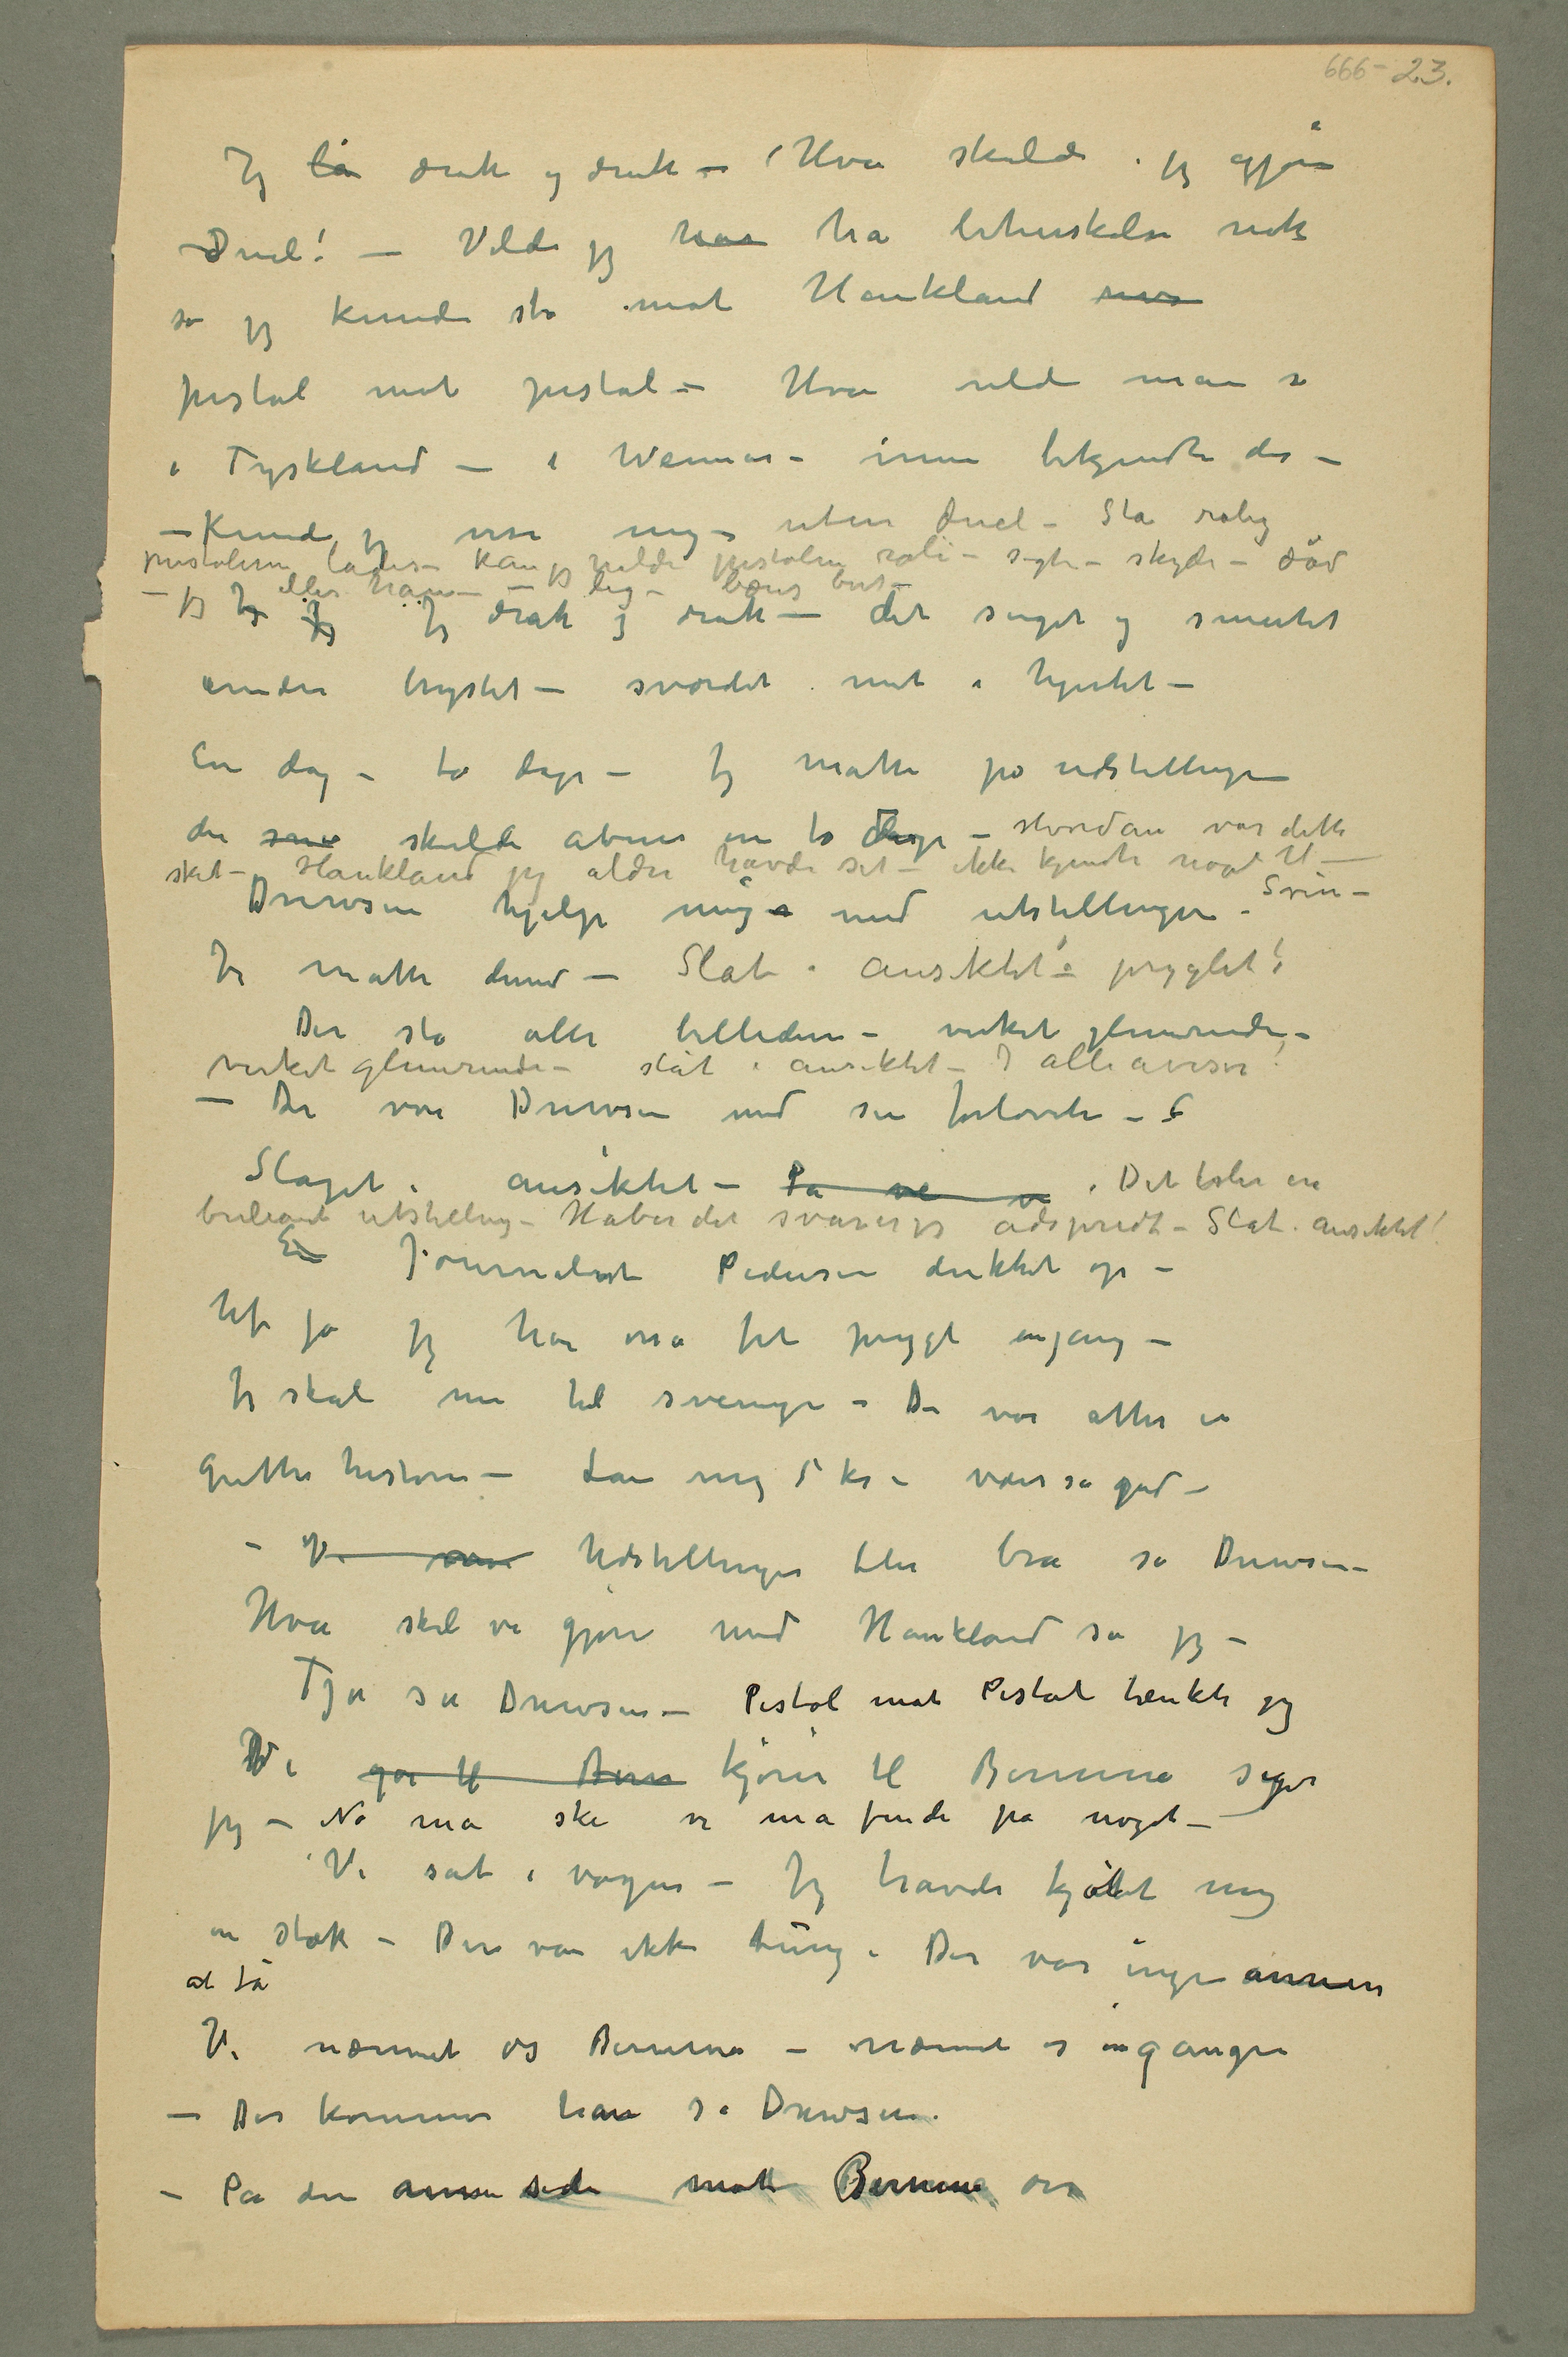 666-23.
Jeg lå drak og drak – Hva skulde jeg gjøre
Duel! – Vilde jeg have ha beherskelse nok
så jeg kunde stå mot Haukland
pistol mot pistol – Hva vilde man si
i Tyskland – i Weimar – mine bekjendte der –
– Kunde jeg vise mig – uten duel – Stå rolig
pistolerne lades – Kan jeg holde pistolen roli – sigte – skyde – død
– jeg eller ham – – jeg lig – bæres bort –
Jeg Jeg Jeg drak og drak – det suget og smertet
under brystet – sværdet mit i hjertet –
En dag – to dage – Jeg måtte på udstillingen
der skulde åbnes om to dage – Hvordan var dette
sket – Haukland jeg aldri havde set – ikke kjendte noget til –
Drewsen hjelp mig med utstillingen – Svin –
Jeg måtte derned – Slåt i ansiktet! pryglet!
Der sto alle billederne – virket glimrende –
virket glimrende – slåt i ansiktet – I alle aviser!
– Der var Drewsen med sin forlovete –
Slaget i ansiktet – På ve vi . Det bler en
briliant utstilling – Håber det svarer jeg adspredt – Slåt i ansiktet!
En Journalist Pedersen dukket op –
Uf ja jeg har osså fåt prygl engang –
Jeg skal nu til Sverige – Der var atter en
Guttehistorie – Lån mig 5 kr – vær så god –
– Vi var Udstillingen bler bra sa Drewsen –
Hva skal vi gjøre med Haukland sa jeg –
Tja sa Drewsen – Pistol mot Pistol tænkte jeg
Vi går til Bern kjører til Bernina siger
jeg – Nå må ske vi må finde på noget –
Vi sat i vognen – Jeg havde kjøbt mig
en stok – Den var ikke tung – Der var ingen annen
at få
Vi nærmet os Bernina – nærmet os ingangen
– Der kommer han sa Drewsen.
– På den annen side mot Bernina